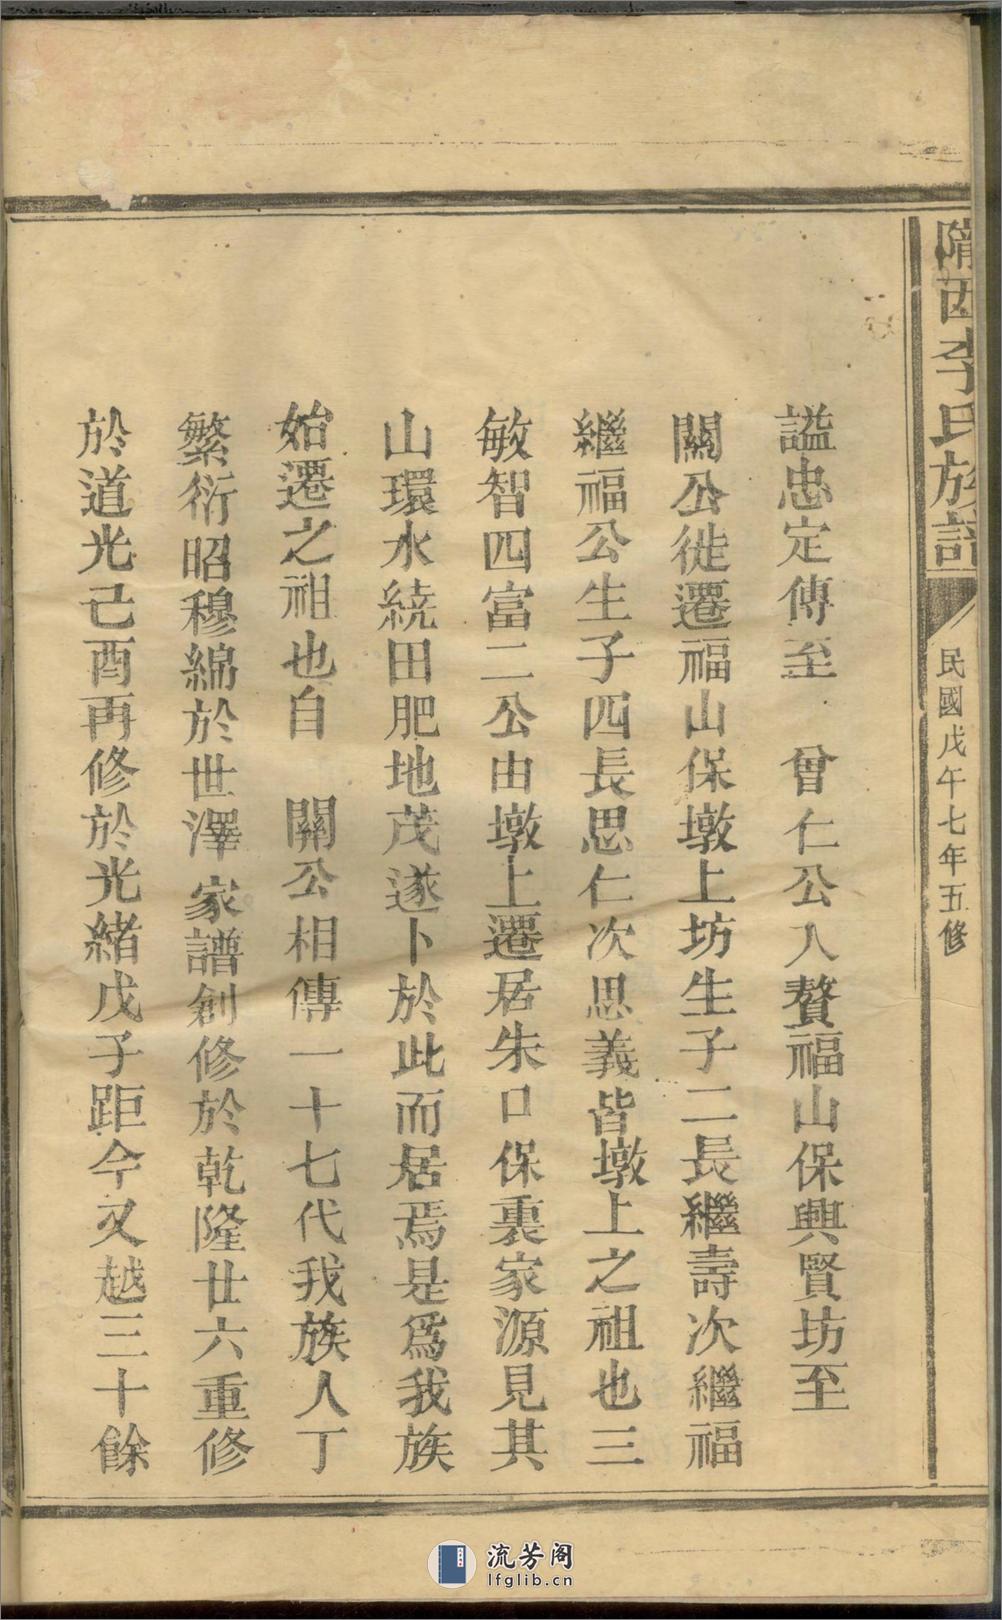 隴西李氏族譜 民國戊午七年五修
謚忠定傳至 曾仁公入贅福山保興賢坊至
關公徙遷福山保墩上坊生子二長繼壽次繼福
繼福公生子四長思仁次思義皆墩上之祖也三
敏智四富二公由墩上遷居朱口保裏家源見其
山環水繞田肥地茂遂卜於此而居焉是爲我族
始遷之祖也自 關公相傳一十七代我族人丁
繁衍昭穆綿於世澤家譜創修於乾隆廿六重修
於道光己酉再修於光緒戊子距今又越三十餘
流芳阁
lfglib.cn